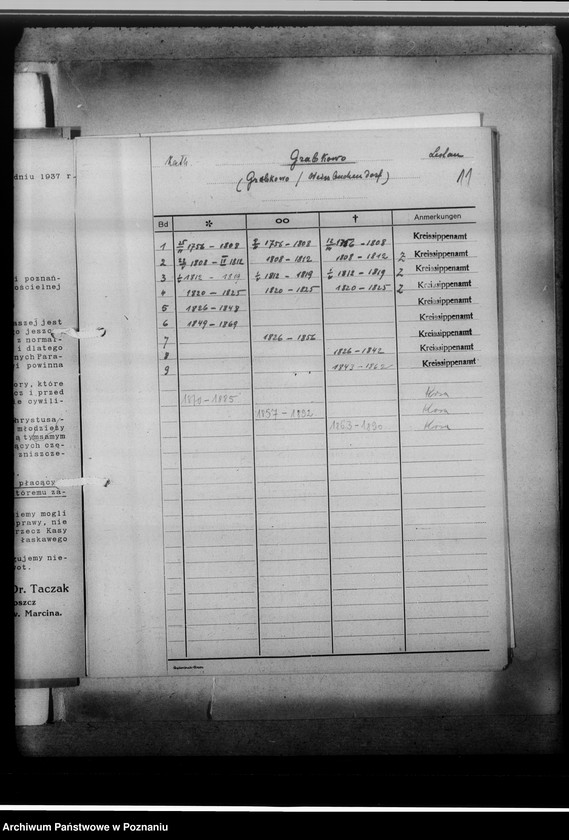 dniu 1937 r.
i poznań-
ościelnej
aszej jest
o jeszc
z normal-
i dlatego
nych Para-
i powinna
ory, które
cz i przed
e cywili-
hrystusa,-
młodzieży
ą tymsamym
ących czę-
zniszcze-
płacący
tóremu za-
iemy mogli
prawy, nie
rzecz Kasy
łaskawego
gujemy nie-
ot.
Dr. Taczak
oszcz
w. Marcina.
Kath. Grabkowo Leslau
(Grabkowo / Weissbuchendorf) 11
Bd * ∞ † Anmerkungen
1 1756 - 1808 1756 - 1808 1756 - 1808 Kreissippenamt
2 1808 - 1812 1808 - 1812 1808 - 1812 Z Kreissippenamt
3 1812 - 1819 1812 - 1819 1812 - 1819 Z Kreissippenamt
4 1820 - 1825 1820 - 1825 1820 - 1825 Z Kreissippenamt
5 1826 - 1848 Kreissippenamt
6 1849 - 1869 Kreissippenamt
7 1826 - 1856 Kreissippenamt
8 1826 - 1842 Kreissippenamt
9 1843 - 1862 Kreissippenamt
1870 - 1885
1857 - 1892
1863 - 1890
Archiwum Państwowe w Poznaniu